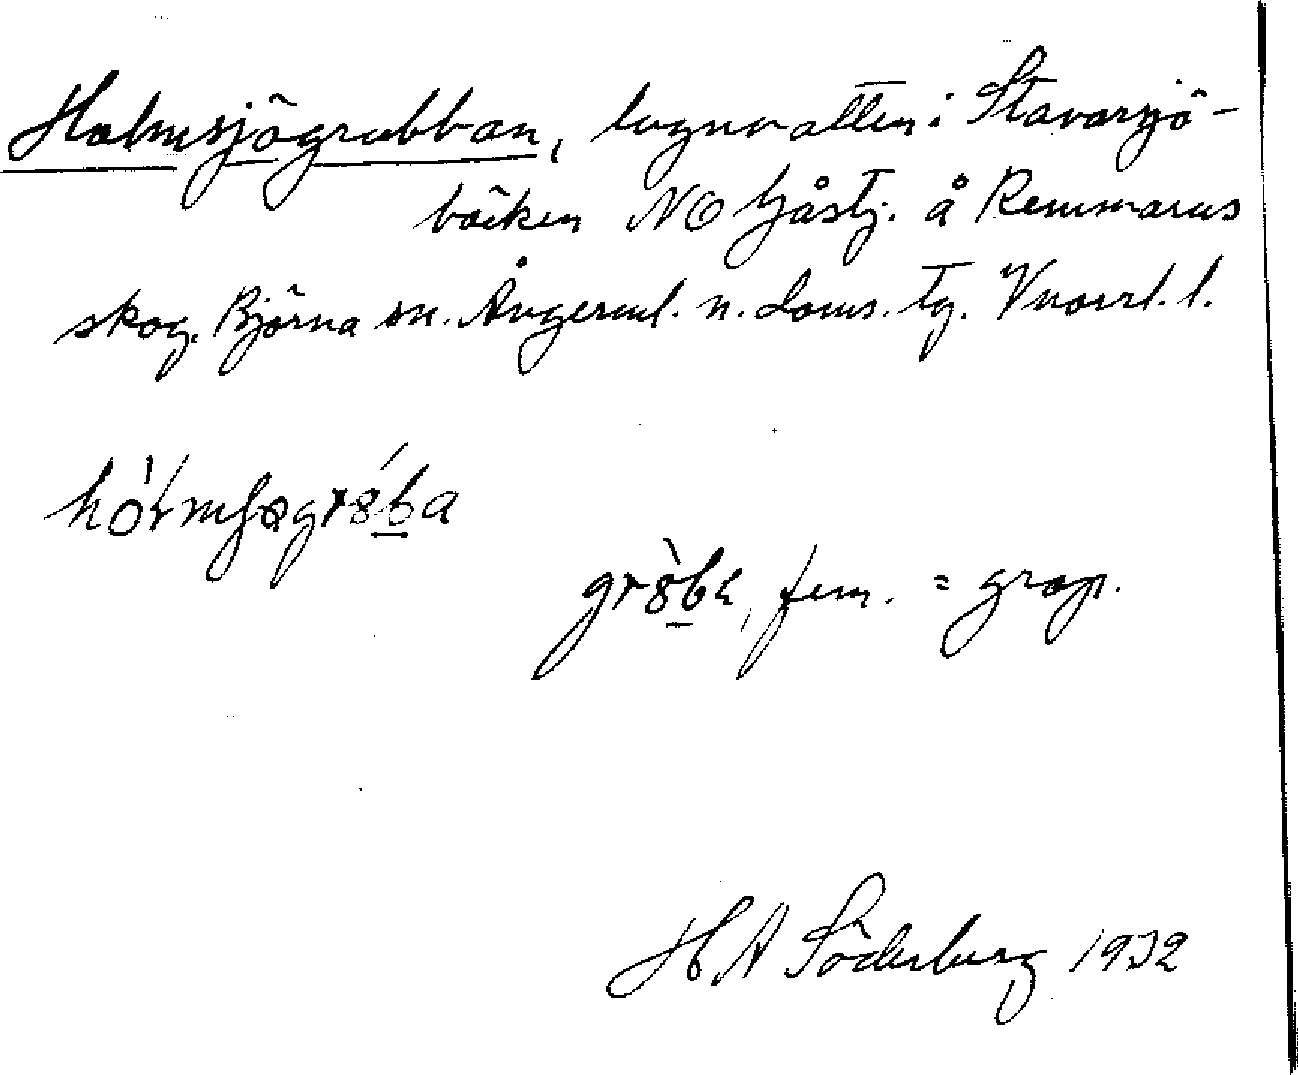 Holmsjögrubban, lugnvatten i Stavarsjö-
bäcken NO Gåstj. å Remmarns
skog. Björna sn. Ångerml. n. doms. tg. Vnorrl. l.
fem. = grop.
H A Söderberg 1932